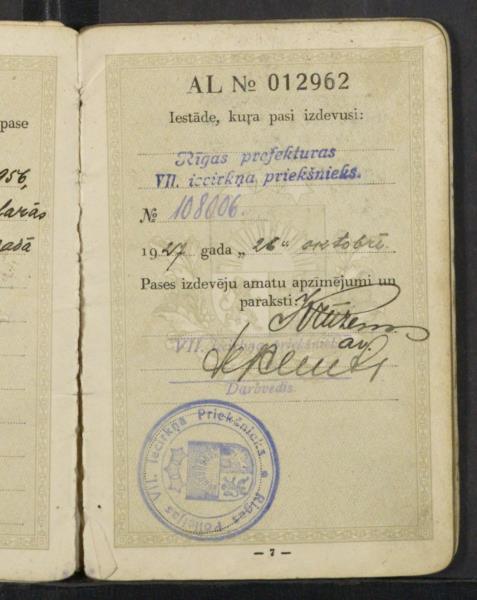 pase
956,
AL № 012962
Iestāde, kuŗa pasi izdevusi:
Rīgas prefekturas
VII. iecirkņa priekšnieks.
№ 108006.
1927 gada „ 26 “ oktobrī.
Pases izdevēju amatu apzīmējumi un
paraksti:
VII. iecirkņa priekšnieks
Darbvedis.
Rīgas Policijas VII. Iecirkņa Priekšnieks
— 7 —